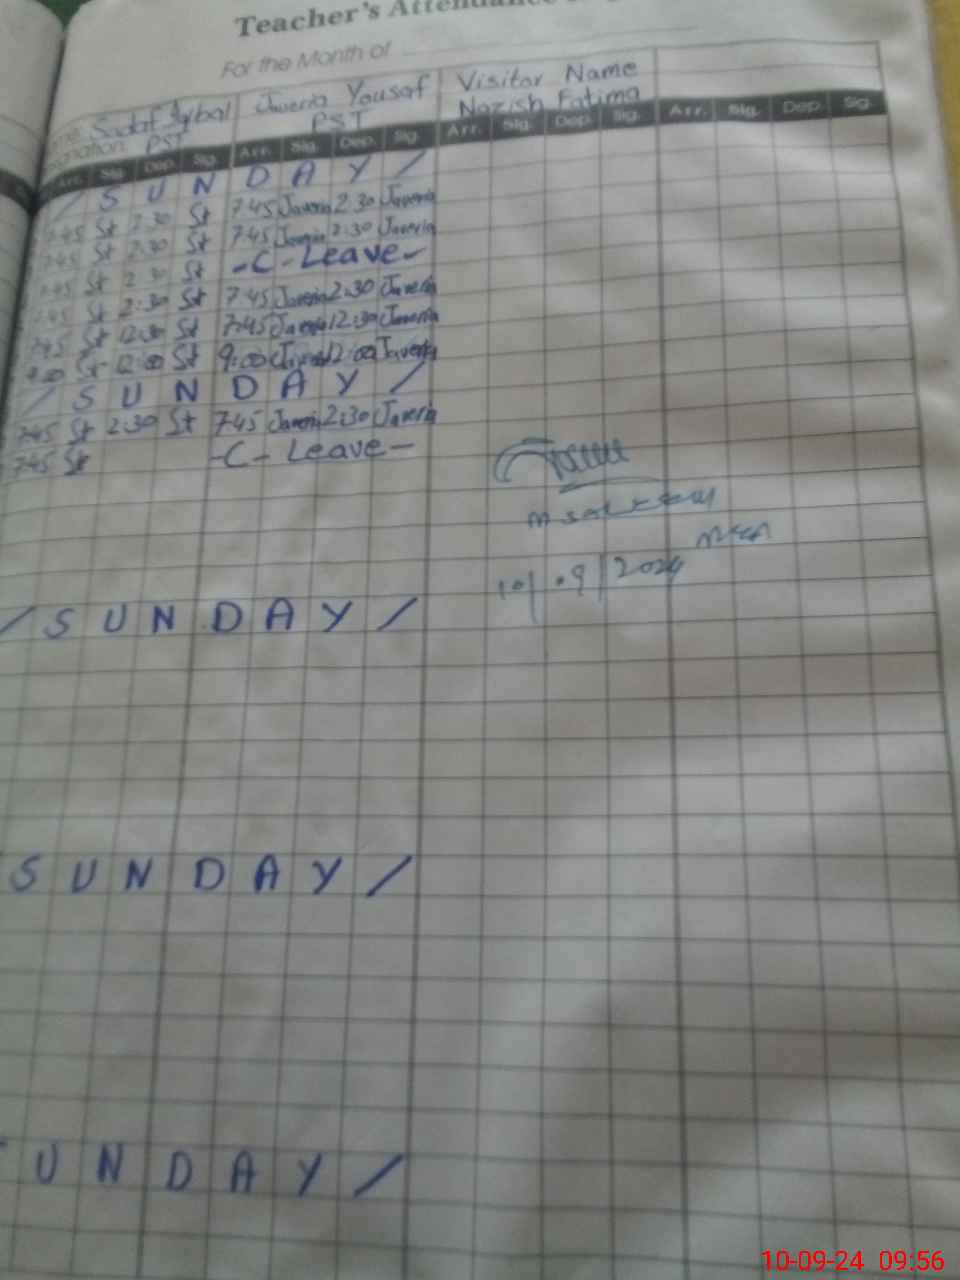 Teacher's Attendance
For the Month of
Sadaf Iqbal Javeria Yousaf Visitor Name
PST PST Nazish Fatima
Arr. Sig. Dep. Sig. Arr. Sig. Dep. Sig. Arr. Sig. Dep. Sig. Arr. Sig. Dep. Sig.
/ S U N D A Y /
7:45 St 2:30 St 7:45 Javeria 2:30 Javeria
7:45 St 2:30 St 7:45 Javeria 2:30 Javeria
7:45 St 2:30 St -C- Leave-
7:45 St 2:30 St 7:45 Javeria 2:30 Javeria
7:45 St 12:30 St 7:45 Javeria 12:30 Javeria
9:00 St 12:00 St 9:00 Javeria 12:00 Javeria
/ S U N D A Y /
7:45 St 2:30 St 7:45 Javeria 2:30 Javeria
7:45 St -C- Leave-
10/09/2024
/ S U N D A Y /
S U N D A Y /
U N D A Y /
10-09-24 09:56